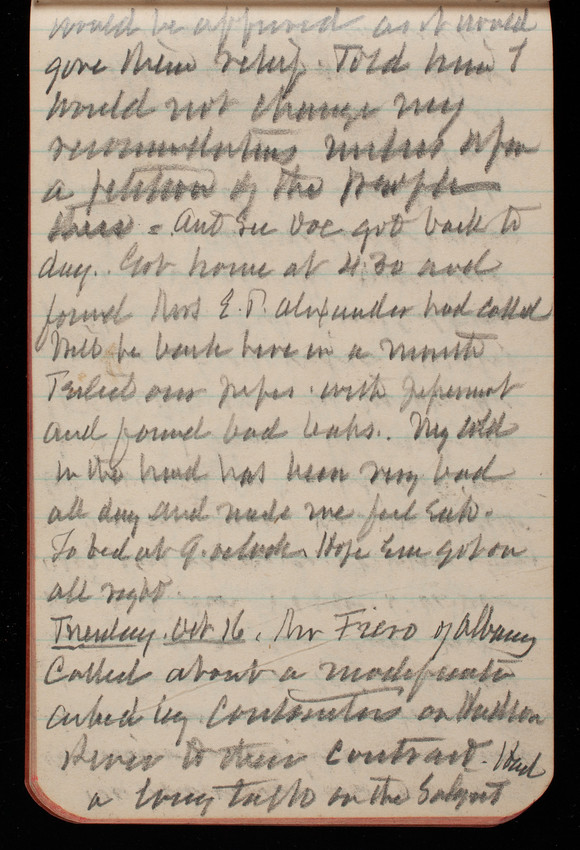 would be approved as it would
give them relief. Told him I
would not change my
recommendations unless upon
a petition of the people
there = Ant See Doc got back to
day. Got home at 4.30 and
found Mrs E. P. Alexander had called
Will be back here in a month
Tested our pipes with peperment
and found bad leaks. My cold
in the head has been very bad
all day and made me feel sick.
To bed at 9. oclock. Hope Em got on
all right.
Tuesday. Oct 16. Mr Fiero of Albany
Called about a modification
asked by Contractors on Hudson
River to their Contract. Had
a long talk on the Subject